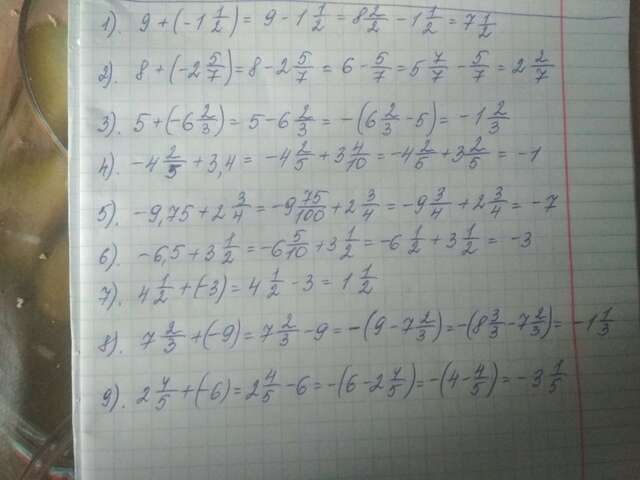 1). 9 + (-1 1/2) = 9 - 1 1/2 = 8 2/2 - 1 1/2 = 7 1/2
2). 8 + (-2 5/7) = 8 - 2 5/7 = 6 - 5/7 = 5 7/7 - 5/7 = 2 2/7
3). 5 + (-6 2/3) = 5 - 6 2/3 = -(6 2/3 - 5) = -1 2/3
4). -4 2/5 + 3,4 = -4 2/5 + 3 4/10 = -4 2/5 + 3 2/5 = -1
5). -9,75 + 2 3/4 = -9 75/100 + 2 3/4 = -9 3/4 + 2 3/4 = -7
6). -6,5 + 3 1/2 = -6 5/10 + 3 1/2 = -6 1/2 + 3 1/2 = -3
7). 4 1/2 + (-3) = 4 1/2 - 3 = 1 1/2
8). 7 2/3 + (-9) = 7 2/3 - 9 = -(9 - 7 2/3) = -(8 3/3 - 7 2/3) = -1 1/3
9). 2 4/5 + (-6) = 2 4/5 - 6 = -(6 - 2 4/5) = -(4 - 4/5) = -3 1/5